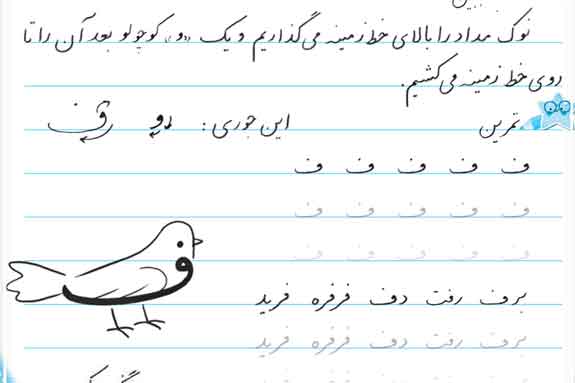 نوک مداد را بالای خط زمینه می‌گذاریم و یک «و» کوچولو بعد آن را تا
روی خط زمینه می‌کشیم.
تمرین این جوری :
ف ف ف ف ف
ف ف ف ف ف
ف ف ف ف ف
برف رفت دف فرفره فرید
برف رفت دف فرفره فرید